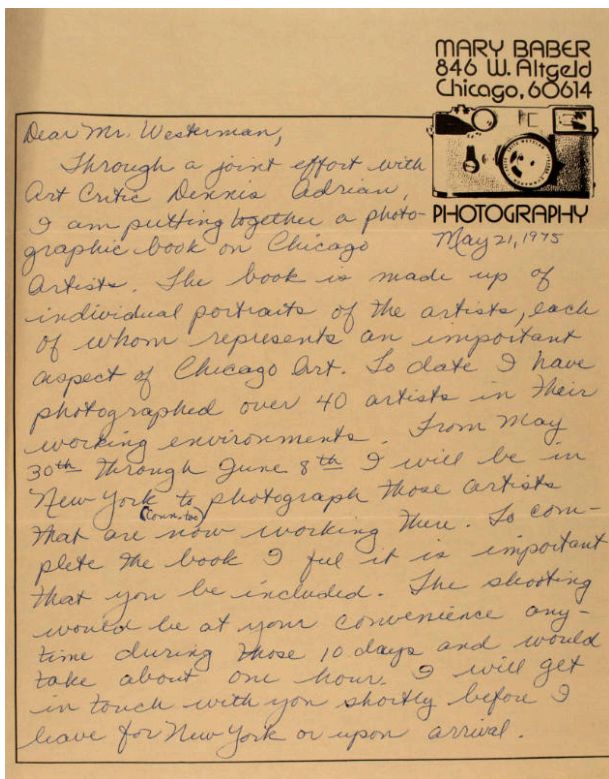 MARY BABER
846 W. Altgeld
Chicago, 60614
PHOTOGRAPHY
May 21, 1975
Dear Mr. Westerman,
Through a joint effort with
Art Critic Dennis Adrian,
I am putting together a photo-
graphic book on Chicago
Artists. The book is made up of
individual portraits of the artists, each
of whom represents an important
aspect of Chicago Art. To date I have
photographed over 40 artists in their
working environments. From May
30th through June 8th I will be in
New York to photograph those artists
(Conn. too)
that are now working there. To com-
plete the book I feel it is important
that you be included. The shooting
would be at your convenience any-
time during those 10 days and would
take about one hour. I will get
in touch with you shortly before I
leave for New York or upon arrival.